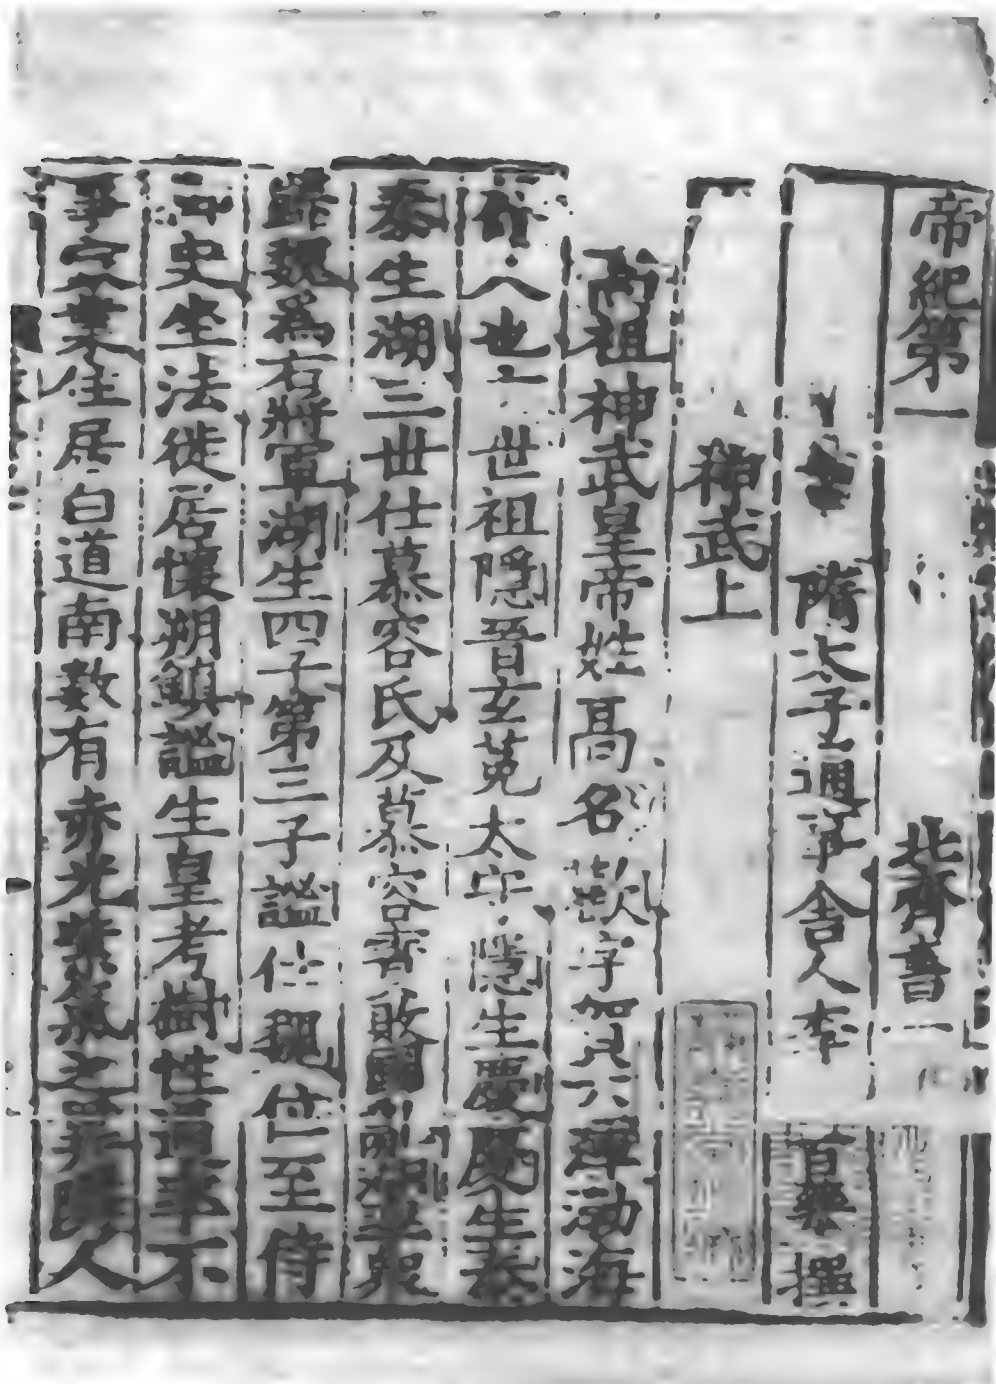 帝紀第一 北齊書一
隋太子通事舍人李 百藥 撰
神武上
高祖神武皇帝姓高名歡字賀六渾勃海
蓚人也六世祖隱晉玄菟太守隱生慶慶生泰
泰生湖三世仕慕容氏及慕容寶敗國亂湖率衆
歸魏爲右將軍湖生四子第三子謐仕魏位至侍
御史坐法徙居懷朔鎮謐生皇考樹性通率不
事家業住居白道南數有赤光紫氣之異隣人